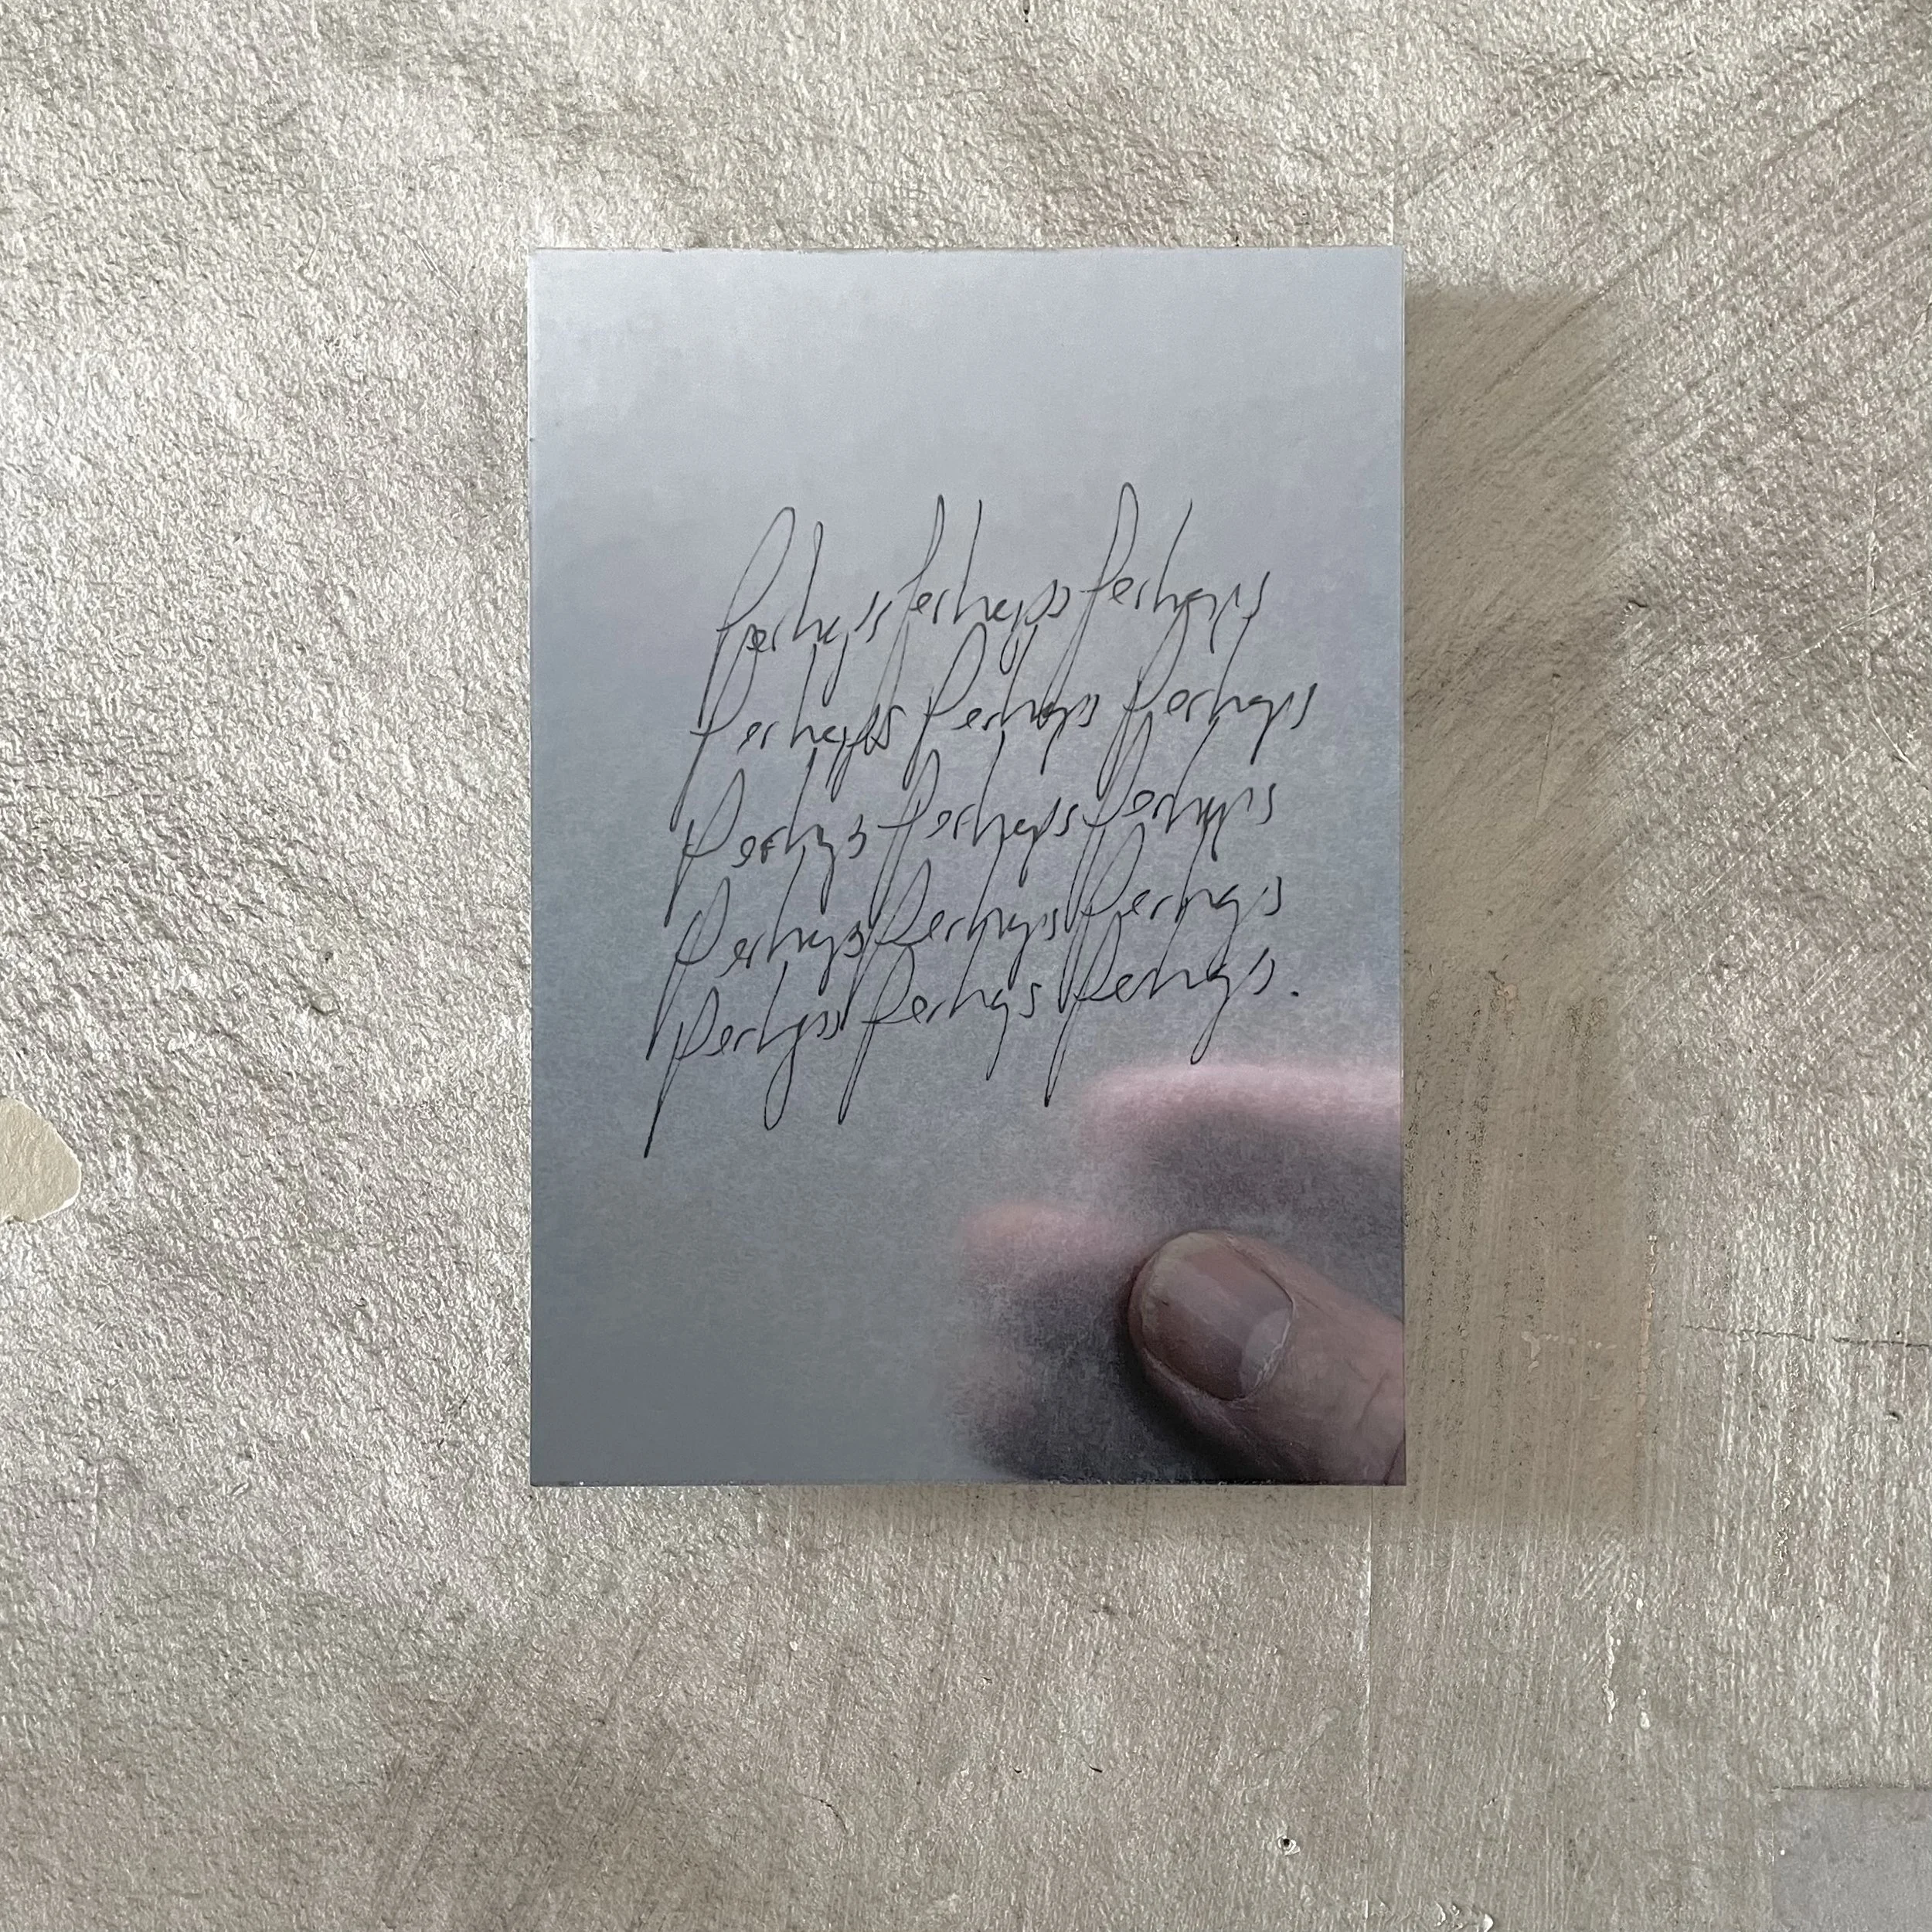 Perhaps perhaps perhaps
Perhaps perhaps perhaps
Perhaps perhaps perhaps
Perhaps perhaps perhaps
Perhaps perhaps perhaps.